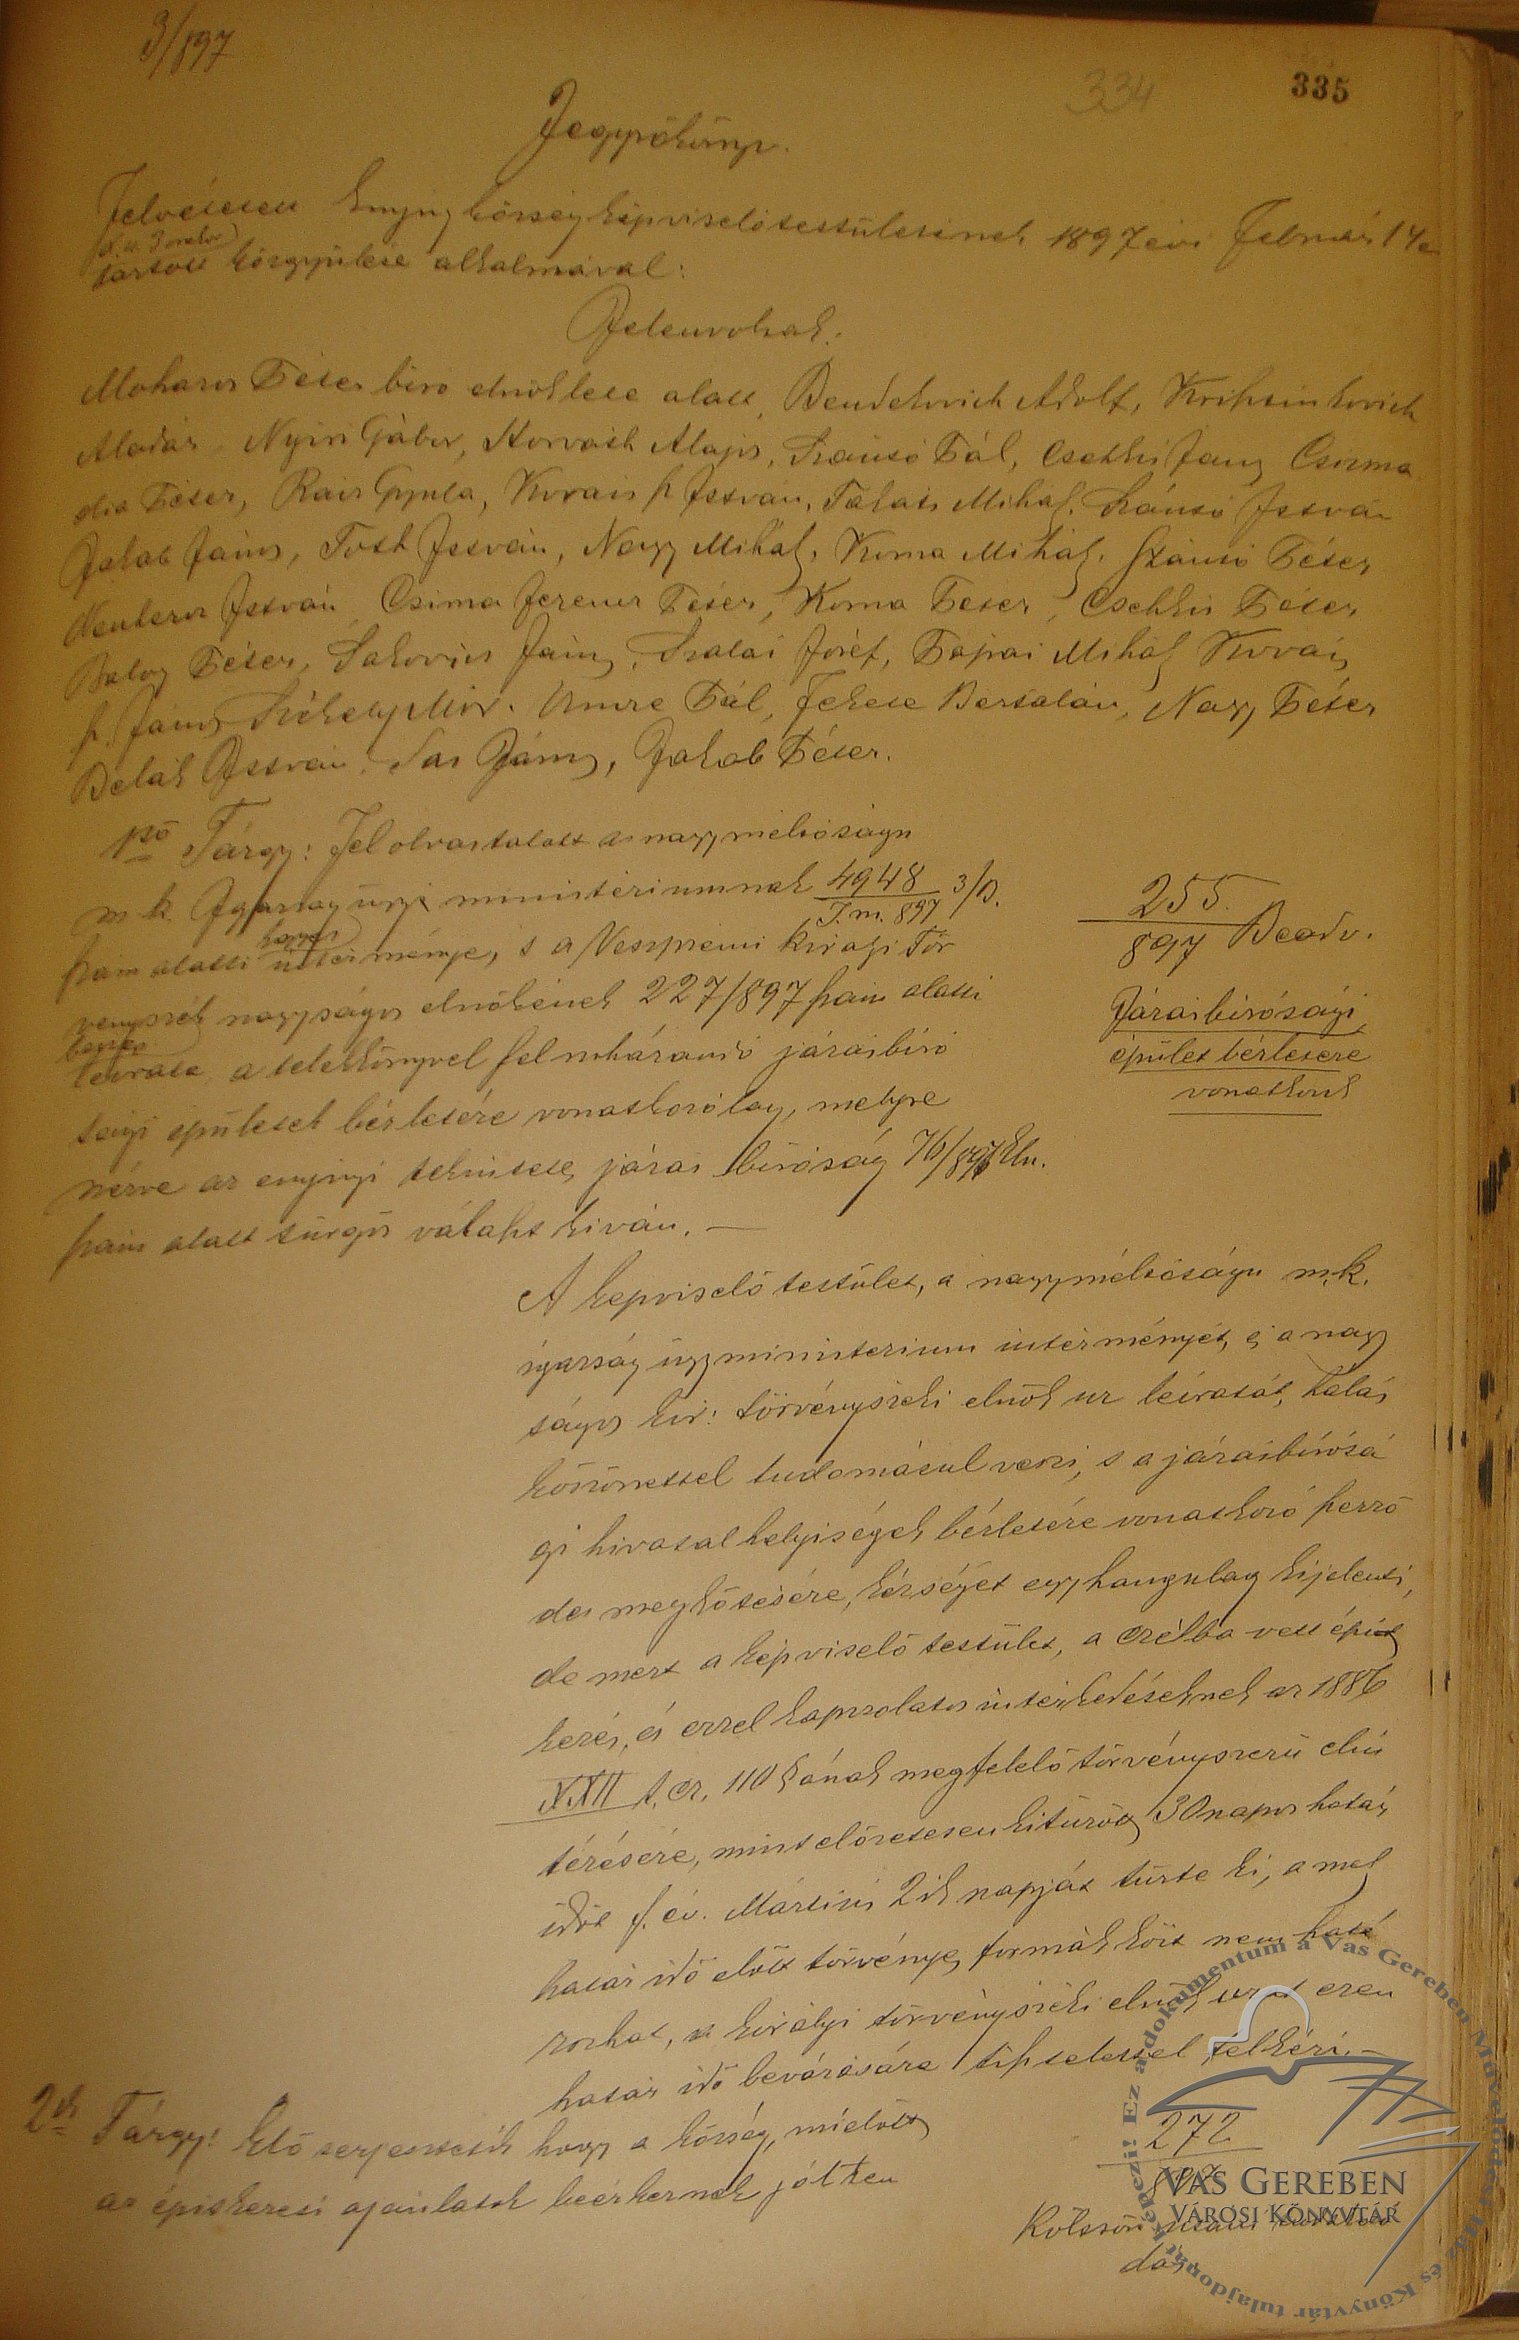 3/897
334
335
Jegyzőkönyv.
Felvétetett Enying község képviselőtestületének 1897 évi Február 14e
d. u. 3 órakor
tartott közgyülése alkalmával:
Jelenvoltak:
Moharos Péter biró elnöklete alatt, Adolf,
Aladár, Nyiri Gábor, Horváth Alajos, Szántó Pál, Csekki János
Péter, Gyula, István, Takáts Mihály, Szántó István
Jakab János, Tóth István, Nagy Mihály, Koma Mihály, Szántó Péter
István, Csima Ferencz Péter, Koma Péter, Péter
Balog Péter, János, Szalai József, Pápai Mihály
János, Székely Mór, Imre Pál, Fekete Bertalan, Nagy Péter
Belák István, Sas János, Jakab Péter.
1ső Tárgy: Felolvastatott a nagyméltóságu
m. k. Igazságügyi ministériumnak 4948/I.m. 897 3/D.
szám alatti intézménye, s a Veszprémi királyi Tör
vényszék nagyságos elnökének 227/897 szám alatti
leirata a telekkönyvel felruházandó járásbiró
sági épületek bérletére vonatkozólag, melyre
nézve az enyingi tekintetes járás biróság 76/897 Eln.
szám alatt sürgős választ kiván. —
255.
897 Beadv.
Járásbirósági
épület bérletére
vonatkozó
A képviselő testület, a nagyméltóságu m. k.
igazság ügyministerium intézményét, és a nagy
ságos kir: törvényszéki elnök ur leiratát, hálás
köszönettel tudomásul veszi, s a járásbirósá
gi hivatal helyiségek bérletére vonatkozó szerző
dés megkötésére, készségét egyhangulag kijelenti,
de mert a képviselő testület, a czélba vett épít
kezés, és ezzel kapcsolatos intézkedéseknek az 1886
XXII t. cz. 110 §ának megfelelő törvényszerü elin
tézésére, mint előzetesen kitüzött 30 napos határ
időt f. év. Mártius 2ik napját tüzte ki, a mely
határ idő előtt törvényes formák közt nem hatá
rozhat, a királyi törvényszéki elnök urat ezen
határ idő bevárására tisztelettel felkéri. —
2ik Tárgy: Elő terjesztetik hogy a község, mielőtt
az épitkezési ajánlatok beérkeznek jól
272
897
Kölcsön
dás
Ez a dokumentum a Vas Gereben Művelődési Ház és Könyvtár tulajdonát képezi!
VAS GEREBEN
VÁROSI KÖNYVTÁR